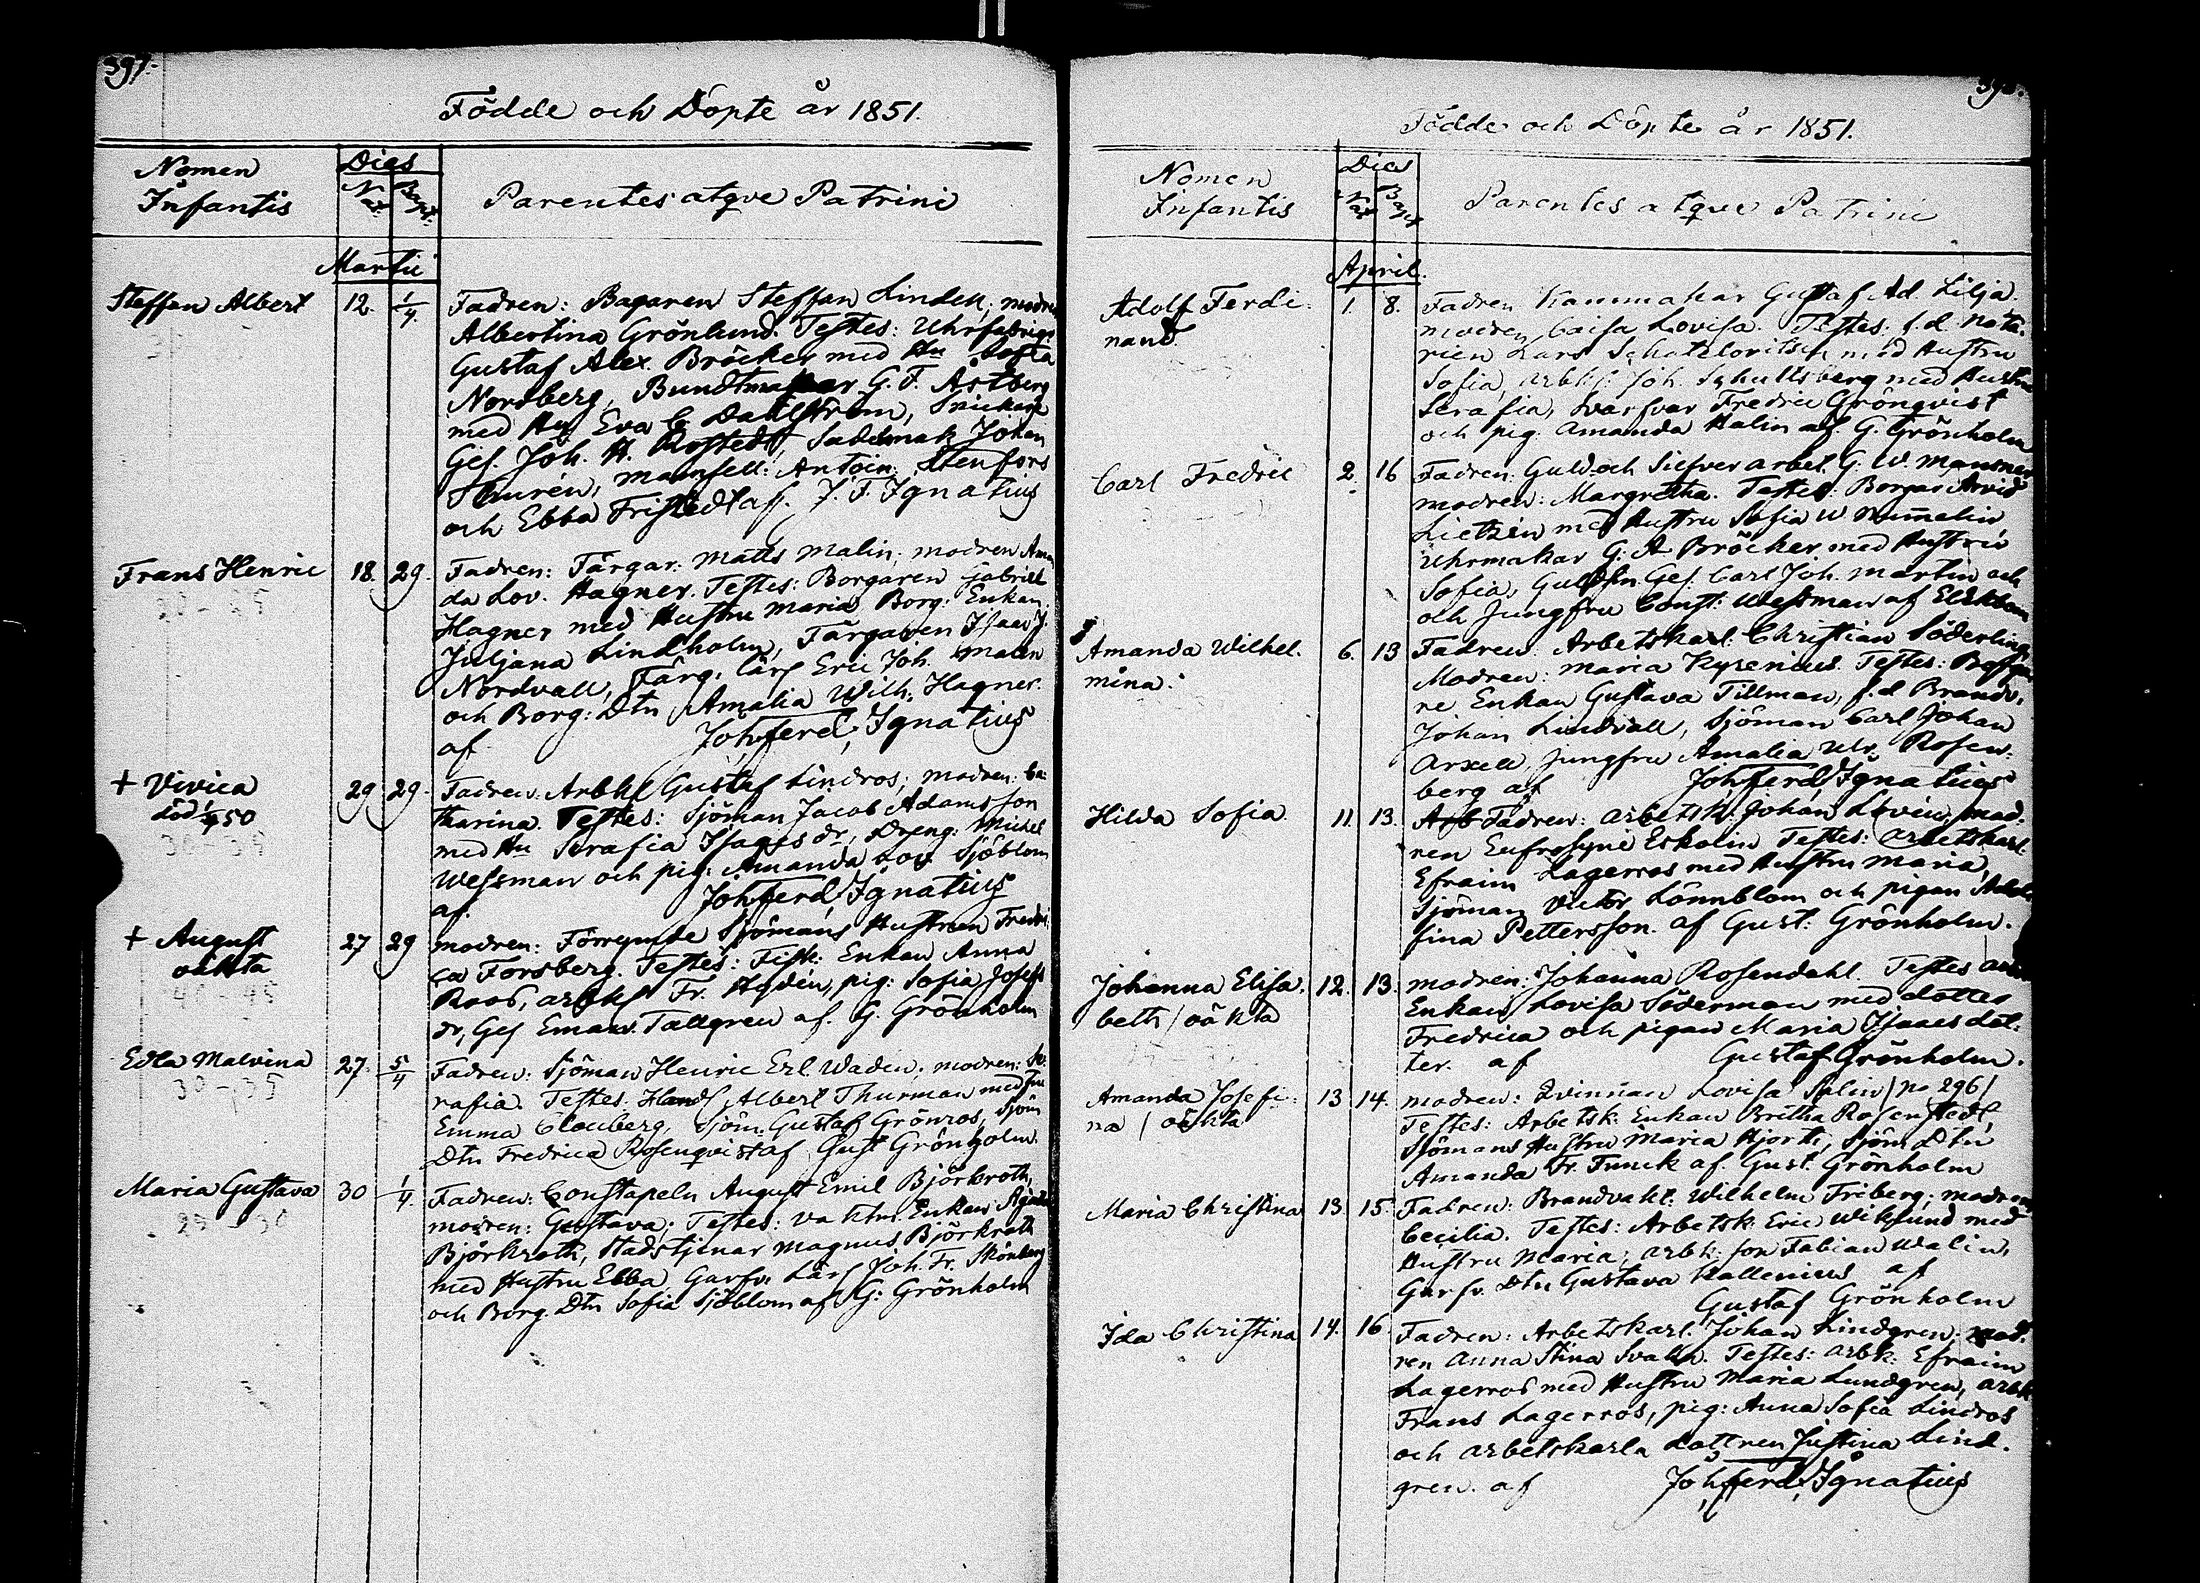 397.
Födde och Döpte år 1851.
Nomen Infantis
Dies
Nat. Bapt.
Parentes atqve Patrini
Martii
Steffan Albert 12. 1/4. Fadren: Bagaren Steffan Lindell; modren
Albertina Grönlund. Testes: Uhrfabrigs.
Gustaf Alex. Bröcker med Hu Sofia
Nordberg, Bundtmakar G. F. Åstberg
med Hu Eva C Dahlström, Snickare
Ges. Joh. H. Rostedt, Sadelmak Johan
Thurén, mamsell: Antoin: Stenfors
och Ebba Fristedt af. J. F. Ignatius
Frans Henric 18. 29. Fadren: Färgar: Matts Malin; modren Aman
da Lov. Hagner. Testes: Borgaren Gabriel
Hagner med Hustru Maria Borg: Enkan
Juljana Lindholm, Färgaren Isaac J.
Nordvall, Färg. lärl Eric Joh. Malin
och Borg: Dtn Amalia Wilh. Hagner.
af Joh. Ferd. Ignatius
+ Vivica 29 29. Fadren: Arbkl Gustaf Lindros; modren: Ca
död 1/4 50 tharina. Testes: Sjöman Jacob Adamsson
med Hu Serafia Isaacs dr, Dreng: Michel
Wessman och pig: Amanda Lov Sjöblom
af. Joh. Ferd. Ignatius
+ August 27 29 modren: Förrymde Sjömans Hustrun Fredri
oäkta ca Forsberg. Testes: Fisk: Enkan Anna
Roos, arbkl Fr. Hydén, pig: Sofia Josefs
dr, Ges Eman. Tallgren af. G. Grönholm
Edla Malvina 27. 5/4 Fadren: Sjöman Henric Erl. Waden; modren: Se
rafia. Testes: Handl Albert Thurman med fru
Emma Clouberg, Sjöm: Gustaf Grönros, Sjöm
Dtn Fredrica Rosenqvist af Gust Grönholm.
Maria Gustava 30 1/4. Fadren: Constapeln August Emil Björkroth,
modren: Gustava; Testes: vaktm. Enkan
Björkroth, Stadstjenar Magnus Björkroth
med Hustru Ebba, Garfv: Lärl Joh. Fr. Skönberg
och Borg. Dtn Sofia Sjöblom af G: Grönholm
Födde och Döpte år 1851.
Nomen Infantis
Dies
Nat Bapt
Parentes atqve Patrini
April.
Adolf Ferdi- 1. 8. Fadren Kammakar Gustaf Ad. Lilja.
nand. modren, Caisa Lovisa. Testes: f.d. Nota-
rien Lars Schatelovitsch med Hustru
Sofia, arbkl: Joh. Schultsberg med Hustru
Serafia, Svarfvar Fredric Grönqvist
och pig. Amanda Malin af. G. Grönholm
Carl Fredric 2. 16 Fadren. Guld och Silfverarbet. G. W. Mansner
modren: Margretha. Testes: Borgar Arvid
Lietzén med Hustru Sofia W Nummelin,
Uhrmakar G: A Bröcker med Hustru
Sofia, Guldsm. Ges. Carl Joh. Martin och
och Jungfru Const: Wessman af
Amanda Wilhel- 6. 13 Fadren: Arbetskarl: Christian Söderling
mina. Modren: Maria Kyrenius. Testes:
re Enkan Gustava Tillman, f.d Brandv.
Johan Lindvall, Sjöman Carl Johan
Axell, Jungfru Amalia Ulr. Rosen-
berg af Joh. Ferd. Ignatius
Hilda Sofia 11. 13. Fadren: arbetsk: Johan Levin, mod-
ren Eufrosyne Eskolin Testes: arbetskarl
Efraim Lagerros med Hustru Maria,
Sjöman Victor Lönnblom och pigan
fina Pettersson. af Gust: Grönholm.
Johanna Elisa- 12. 13. modren: Johanna Rosendahl. Testes
beth / oäkta Enkan Lovisa Söderman med dotter
Fredrica och pigan Maria Isaacs dot-
ter. af Gustaf Grönholm.
Amanda Josefi- 13 14. modren: Qvinnan Lovisa Salin / no 296 /
na / oäkta Testes: Arbetsk: Enkan Britha Rosenstedt,
Sjömans Hustru Maria Hjort, Sjöm. Dtn
Amanda Fr. Funck af. Gust. Grönholm
Maria Christina 13. 15. Fadren: Brandvakt. Wilhelm Friberg; modren
Cecilia. Testes: Arbetsk. Eric Wiklund med
Hustru Maria; arbk: son Fabian Walin,
Garfv. Dtn Gustava Kallenius af
Gustaf Grönholm
Ida Christina 14. 16. Fadren: Arbetskarl. Johan Lindgren; mod-
ren Anna Stina Svahn. Testes: arbk. Efraim
Lagerros med Hustru Maria Lundgren, arbk
Frans Lagerros, pig: Anna Sofia Lindros
och arbetskarla dottren Justina Lind-
gren. af Joh. Ferd. Ignatius